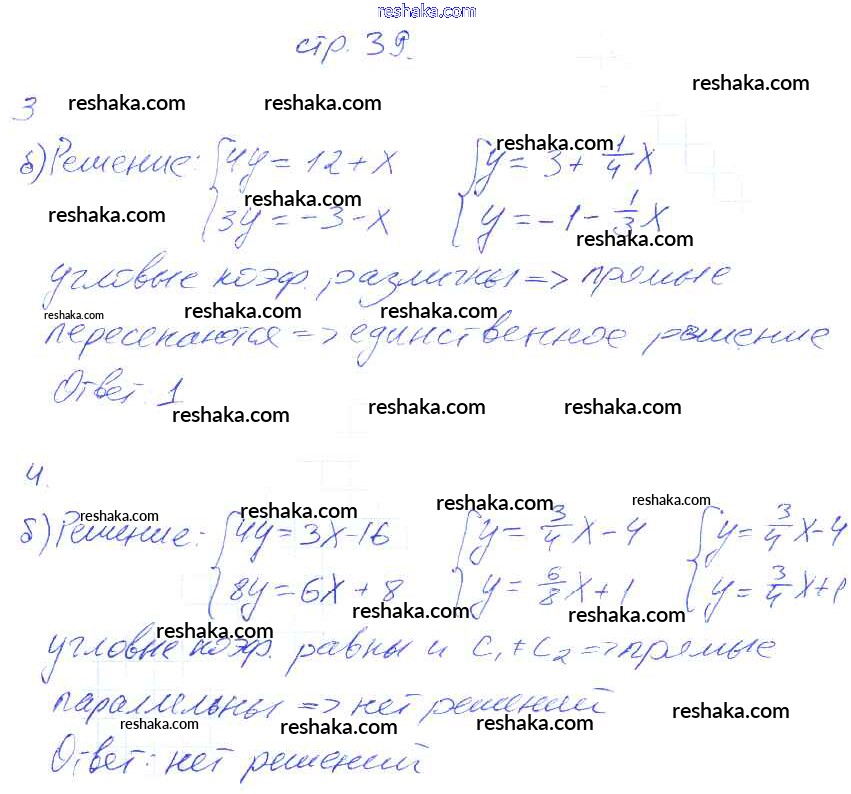 reshaka.com
стр. 39.
reshaka.com
3 reshaka.com reshaka.com
б) Решение: { 4y = 12 + x { y = 3 + 1/4 x
reshaka.com
3y = -3 - x y = -1 - 1/3 x
reshaka.com reshaka.com reshaka.com
угловые коэф. различны => прямые
reshaka.com reshaka.com reshaka.com
пересекаются => единственное решение
Ответ: 1
reshaka.com reshaka.com reshaka.com
4.
reshaka.com reshaka.com reshaka.com reshaka.com
б) Решение: { 4y = 3x - 16 { y = 3/4 x - 4 { y = 3/4 x - 4
8y = 6x + 8 y = 6/8 x + 1 y = 3/4 x + 1
reshaka.com reshaka.com reshaka.com
угловые коэф. равны и C₁ ≠ C₂ => прямые
параллельны => нет решений
reshaka.com reshaka.com reshaka.com reshaka.com
Ответ: нет решений